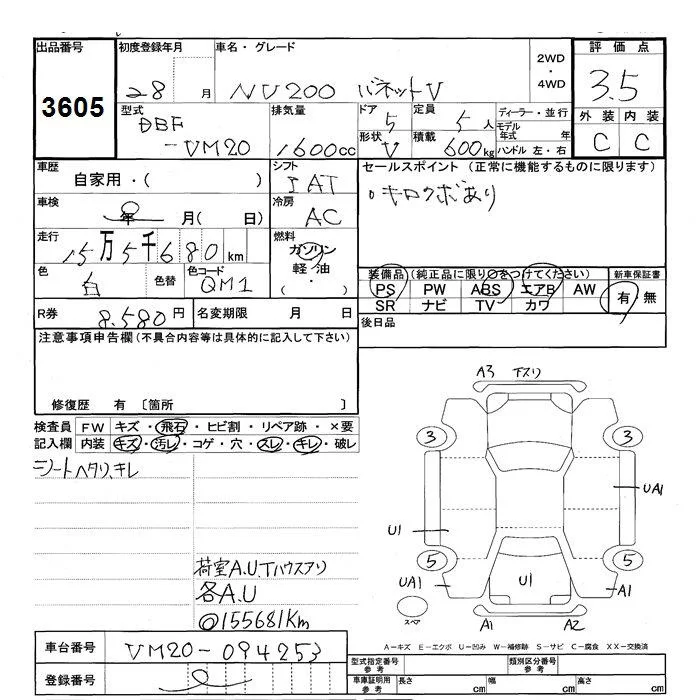 出品番号
3605
初度登録年月
28 月
車名・グレード
NV200 バネットV
2WD
・
4WD
評価点
3.5
外装 内装
C C
型式
DBF
-VM20
排気量
1600cc
ドア 5
形状 V
定員 5人
積載 600kg
ディーラー・並行
モデル年式 年
ハンドル 左・右
車歴
自家用・( )
シフト
IAT
セールスポイント(正常に機能するものに限ります)
キロクボあり
車検
年 月( )
冷房
AC
走行
15万5千680km
燃料
ガソリン
軽・油
・
色
白
色替
色コード
QM1
装備品(純正品に限り○をつけてください)
PS PW ABS エアB AW
SR ナビ TV カワ
新車保証書
有・無
R券
8.580円
名変期限 月 日
後日品
注意事項申告欄(不具合内容等は具体的に記入して下さい)
修復歴 有 〔箇所 〕
検査員
記入欄
FW キズ・飛石・ヒビ割・リペア跡・×要
内装 キズ・汚レ・コゲ・穴・スレ・キレ・破レ
シートヘタリ、キレ
荷室A.U.Tハウスアリ
各A.U
◎155681Km
A3 下スリ
3 3
UA1
U1
5 5
UA1
U1
A1
スペア
A1 A2
A=キズ E=エクボ U=凹み W=補修跡 S=サビ C=腐食 XX=交換済
車台番号
VM20-094253
登録番号
型式指定番号
参考
類別区分番号
参考
車庫証明用
参考
長さ cm 幅 cm 高さ cm